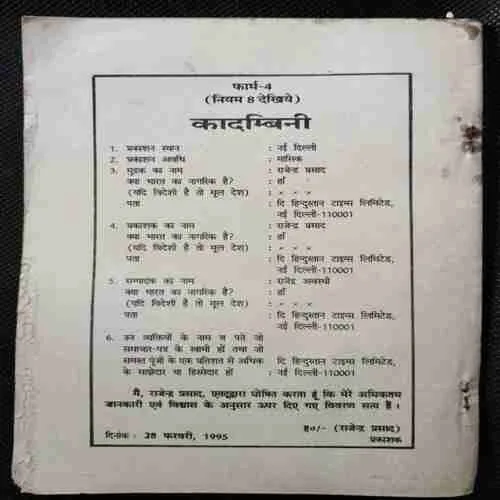 फार्म-4
(नियम 8 देखिये)
कादम्बिनी
1. प्रकाशन स्थान : नई दिल्ली
2. प्रकाशन अवधि : मासिक
3. मुद्रक का नाम : राजेन्द्र प्रसाद
क्या भारत का नागरिक है? : हाँ
(यदि विदेशी है तो मूल देश) : × × ×
पता : दि हिन्दुस्तान टाइम्स लिमिटेड,
नई दिल्ली-110001
4. प्रकाशक का नाम : राजेन्द्र प्रसाद
क्या भारत का नागरिक है? : हाँ
(यदि विदेशी है तो मूल देश) : × × ×
पता : दि हिन्दुस्तान टाइम्स लिमिटेड,
नई दिल्ली-110001
5. सम्पादक का नाम : राजेन्द्र अवस्थी
क्या भारत का नागरिक है? : हाँ
(यदि विदेशी है तो मूल देश) : × × ×
पता : दि हिन्दुस्तान टाइम्स लिमिटेड,
नई दिल्ली-110001
6. उन व्यक्तियों के नाम व पते जो
समाचार-पत्र के स्वामी हों तथा जो
समस्त पूंजी के एक प्रतिशत से अधिक : दि हिन्दुस्तान टाइम्स लिमिटेड,
के साझेदार या हिस्सेदार हों : नई दिल्ली-110001
मैं, राजेन्द्र प्रसाद, एतद्द्वारा घोषित करता हूं कि मेरे अधिकतम
जानकारी एवं विश्वास के अनुसार ऊपर दिए गए विवरण सत्य हैं।
ह०/- (राजेन्द्र प्रसाद)
दिनांक: 28 फरवरी, 1995 प्रकाशक